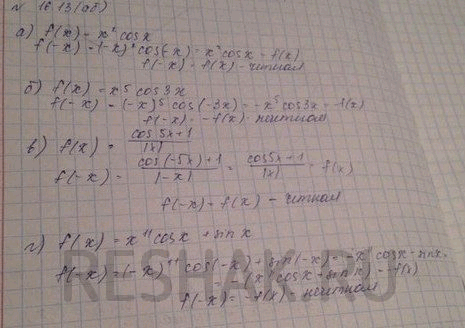 № 16.13(аб)
а) f(x) = x² cosx
f(-x) = (-x)² cos(-x) = x² cosx = f(x)
f(-x) = f(x) - четная
б) f(x) = x⁵ cos3x
f(-x) = (-x)⁵ cos(-3x) = -x⁵ cos3x = -f(x)
f(-x) = -f(x) - нечетная
в) f(x) = cos5x+1 / |x|
f(-x) = cos(-5x)+1 / |-x| = cos5x+1 / |x| = f(x)
f(-x) = f(x) - четная
г) f(x) = x¹¹ cosx + sinx
f(-x) = (-x)¹¹ cos(-x) + sin(-x) = -x¹¹ cosx - sinx =
= -(x¹¹ cosx + sinx) = -f(x)
f(-x) = -f(x) - нечетная
RESHAK.RU